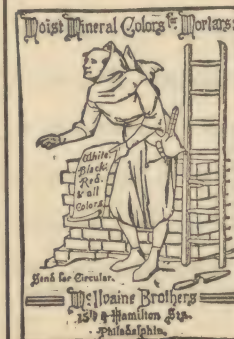 Moist Mineral Colors for Mortars:
White,
Black,
Red,
& all
Colors.
Send for Circular.
McIlvaine Brothers
15th & Hamilton Sts.
Philadelphia.